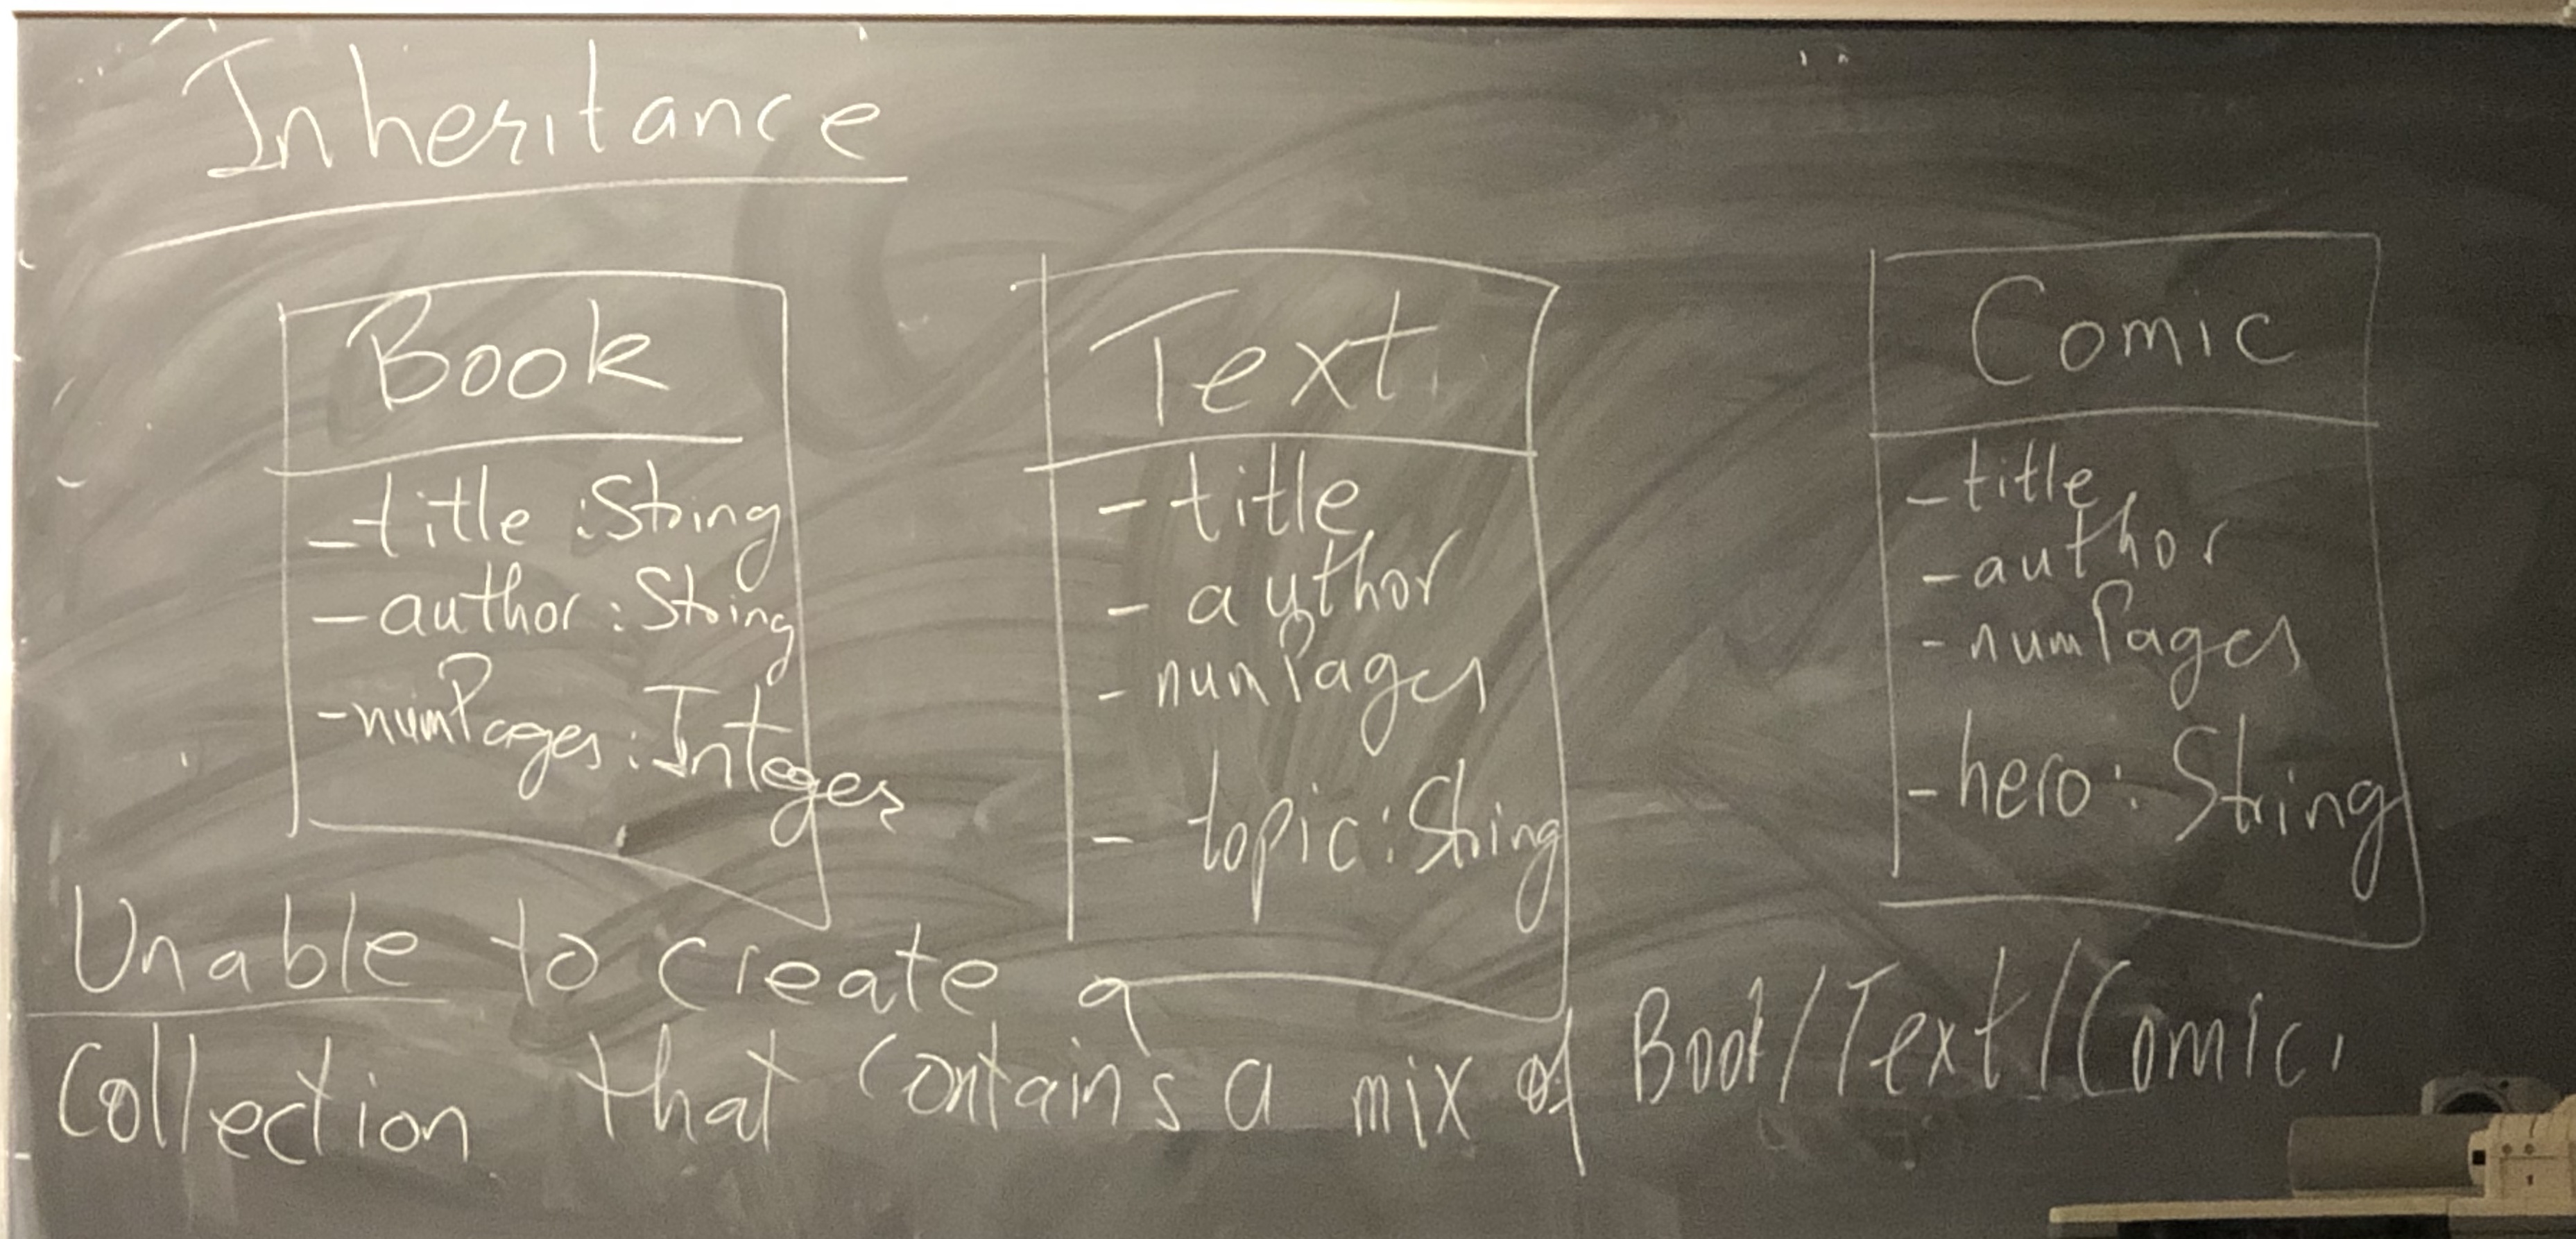 Inheritance
Book
- title : String
- author : String
- numPages : Integer
Text
- title
- author
- numPages
- topic : String
Comic
- title
- author
- numPages
- hero : String
Unable to create a
Collection that contains a mix of Book/Text/Comic.